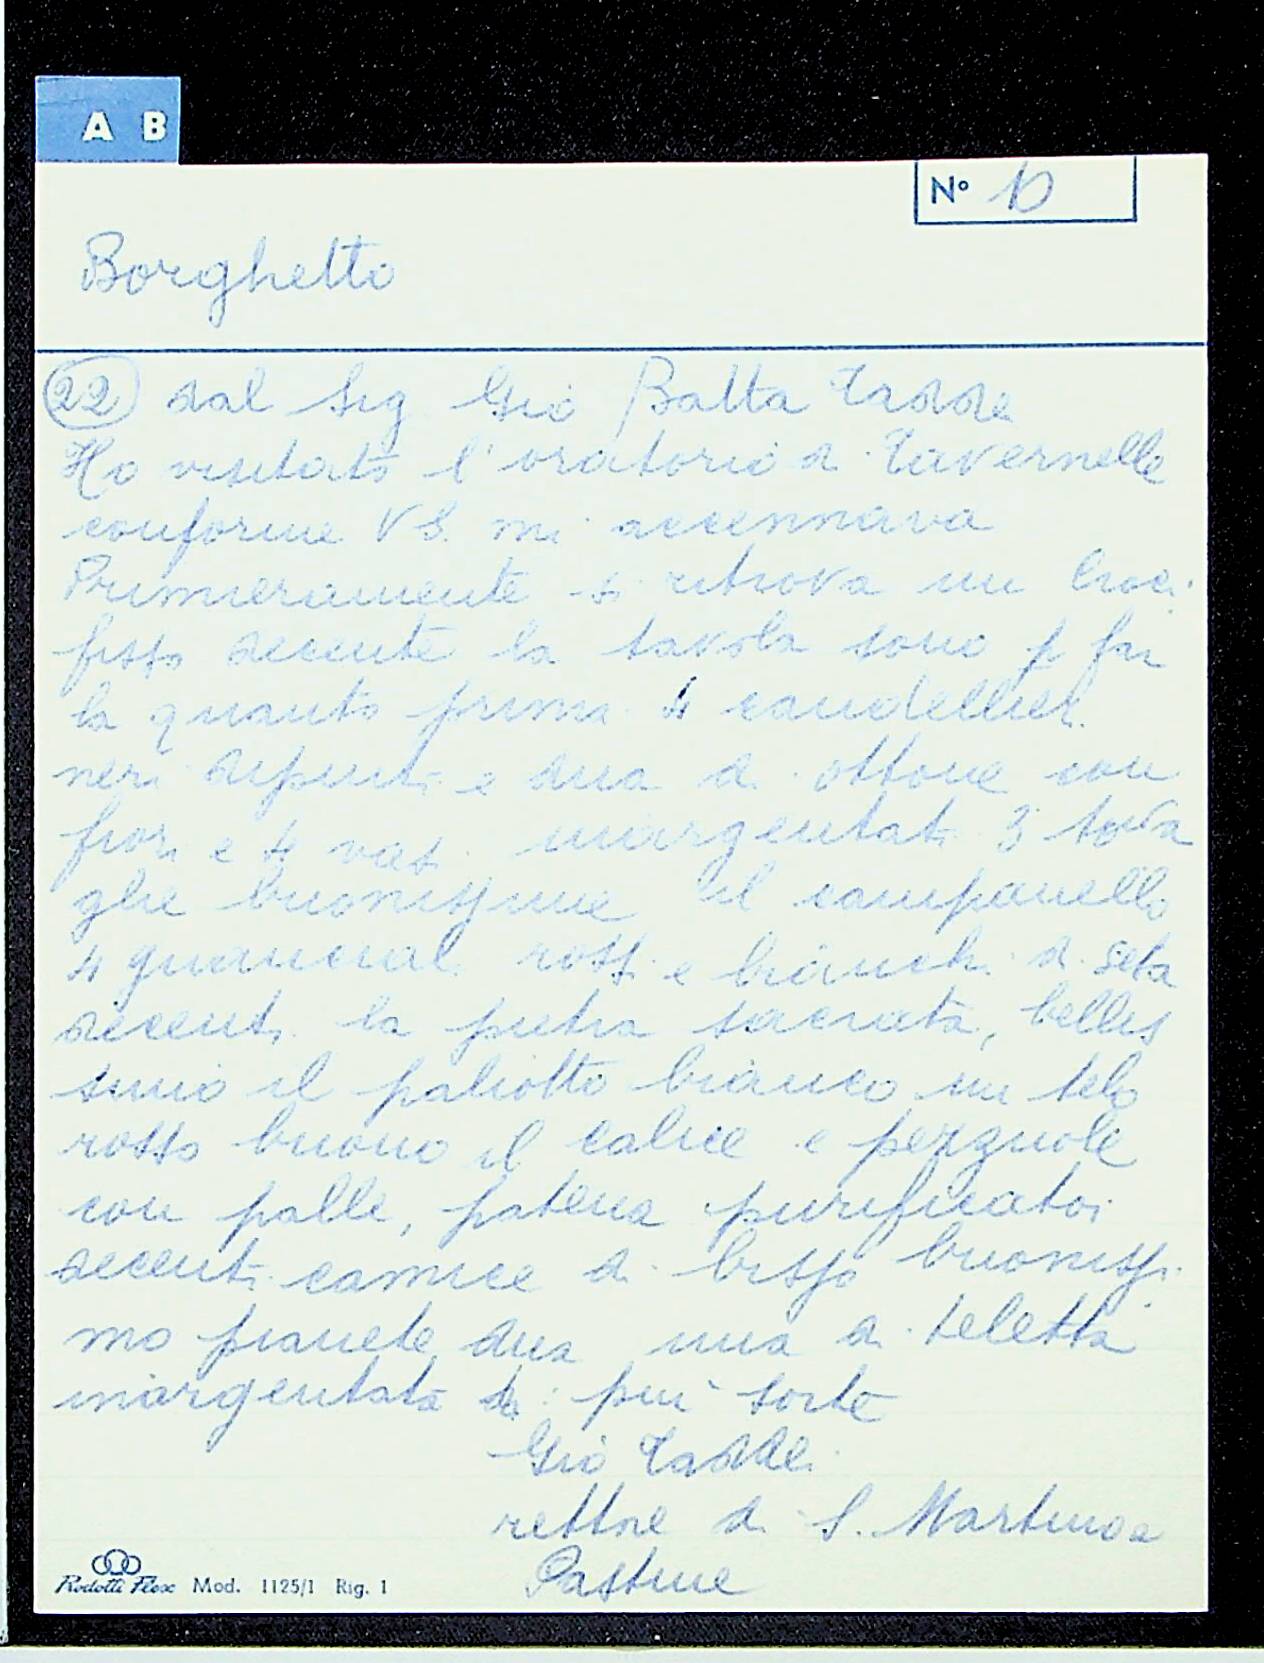 A B
N° 10
Borghetto
22 dal Sig Gio Batta Taddei
Ho visitato l'oratorio di Tavernelle
conforme VS. mi accennava
Primieramente si ritrova un Croci
fisso decente la tavola sono p far
la quanto prima 4 candellieri
neri dipinti e dua di ottone con
fiori e 4 vasi inargentati 3 tova
glie buonissime il campanello
4 guanciali rossi e bianchi di seta
decenti la pietra sacrata, bellis
simo il paliotto bianco un telo
rosso buono il calice e pezzuole
con palle, patena purificatoi
decenti camice di bisso buonissi
mo pianete dua una di teletta
inargentata di più sorte
Gio Taddei
rettore di S. Martino a
Pastine
Rodotti Flex Mod. 1125/1 Rig. 1